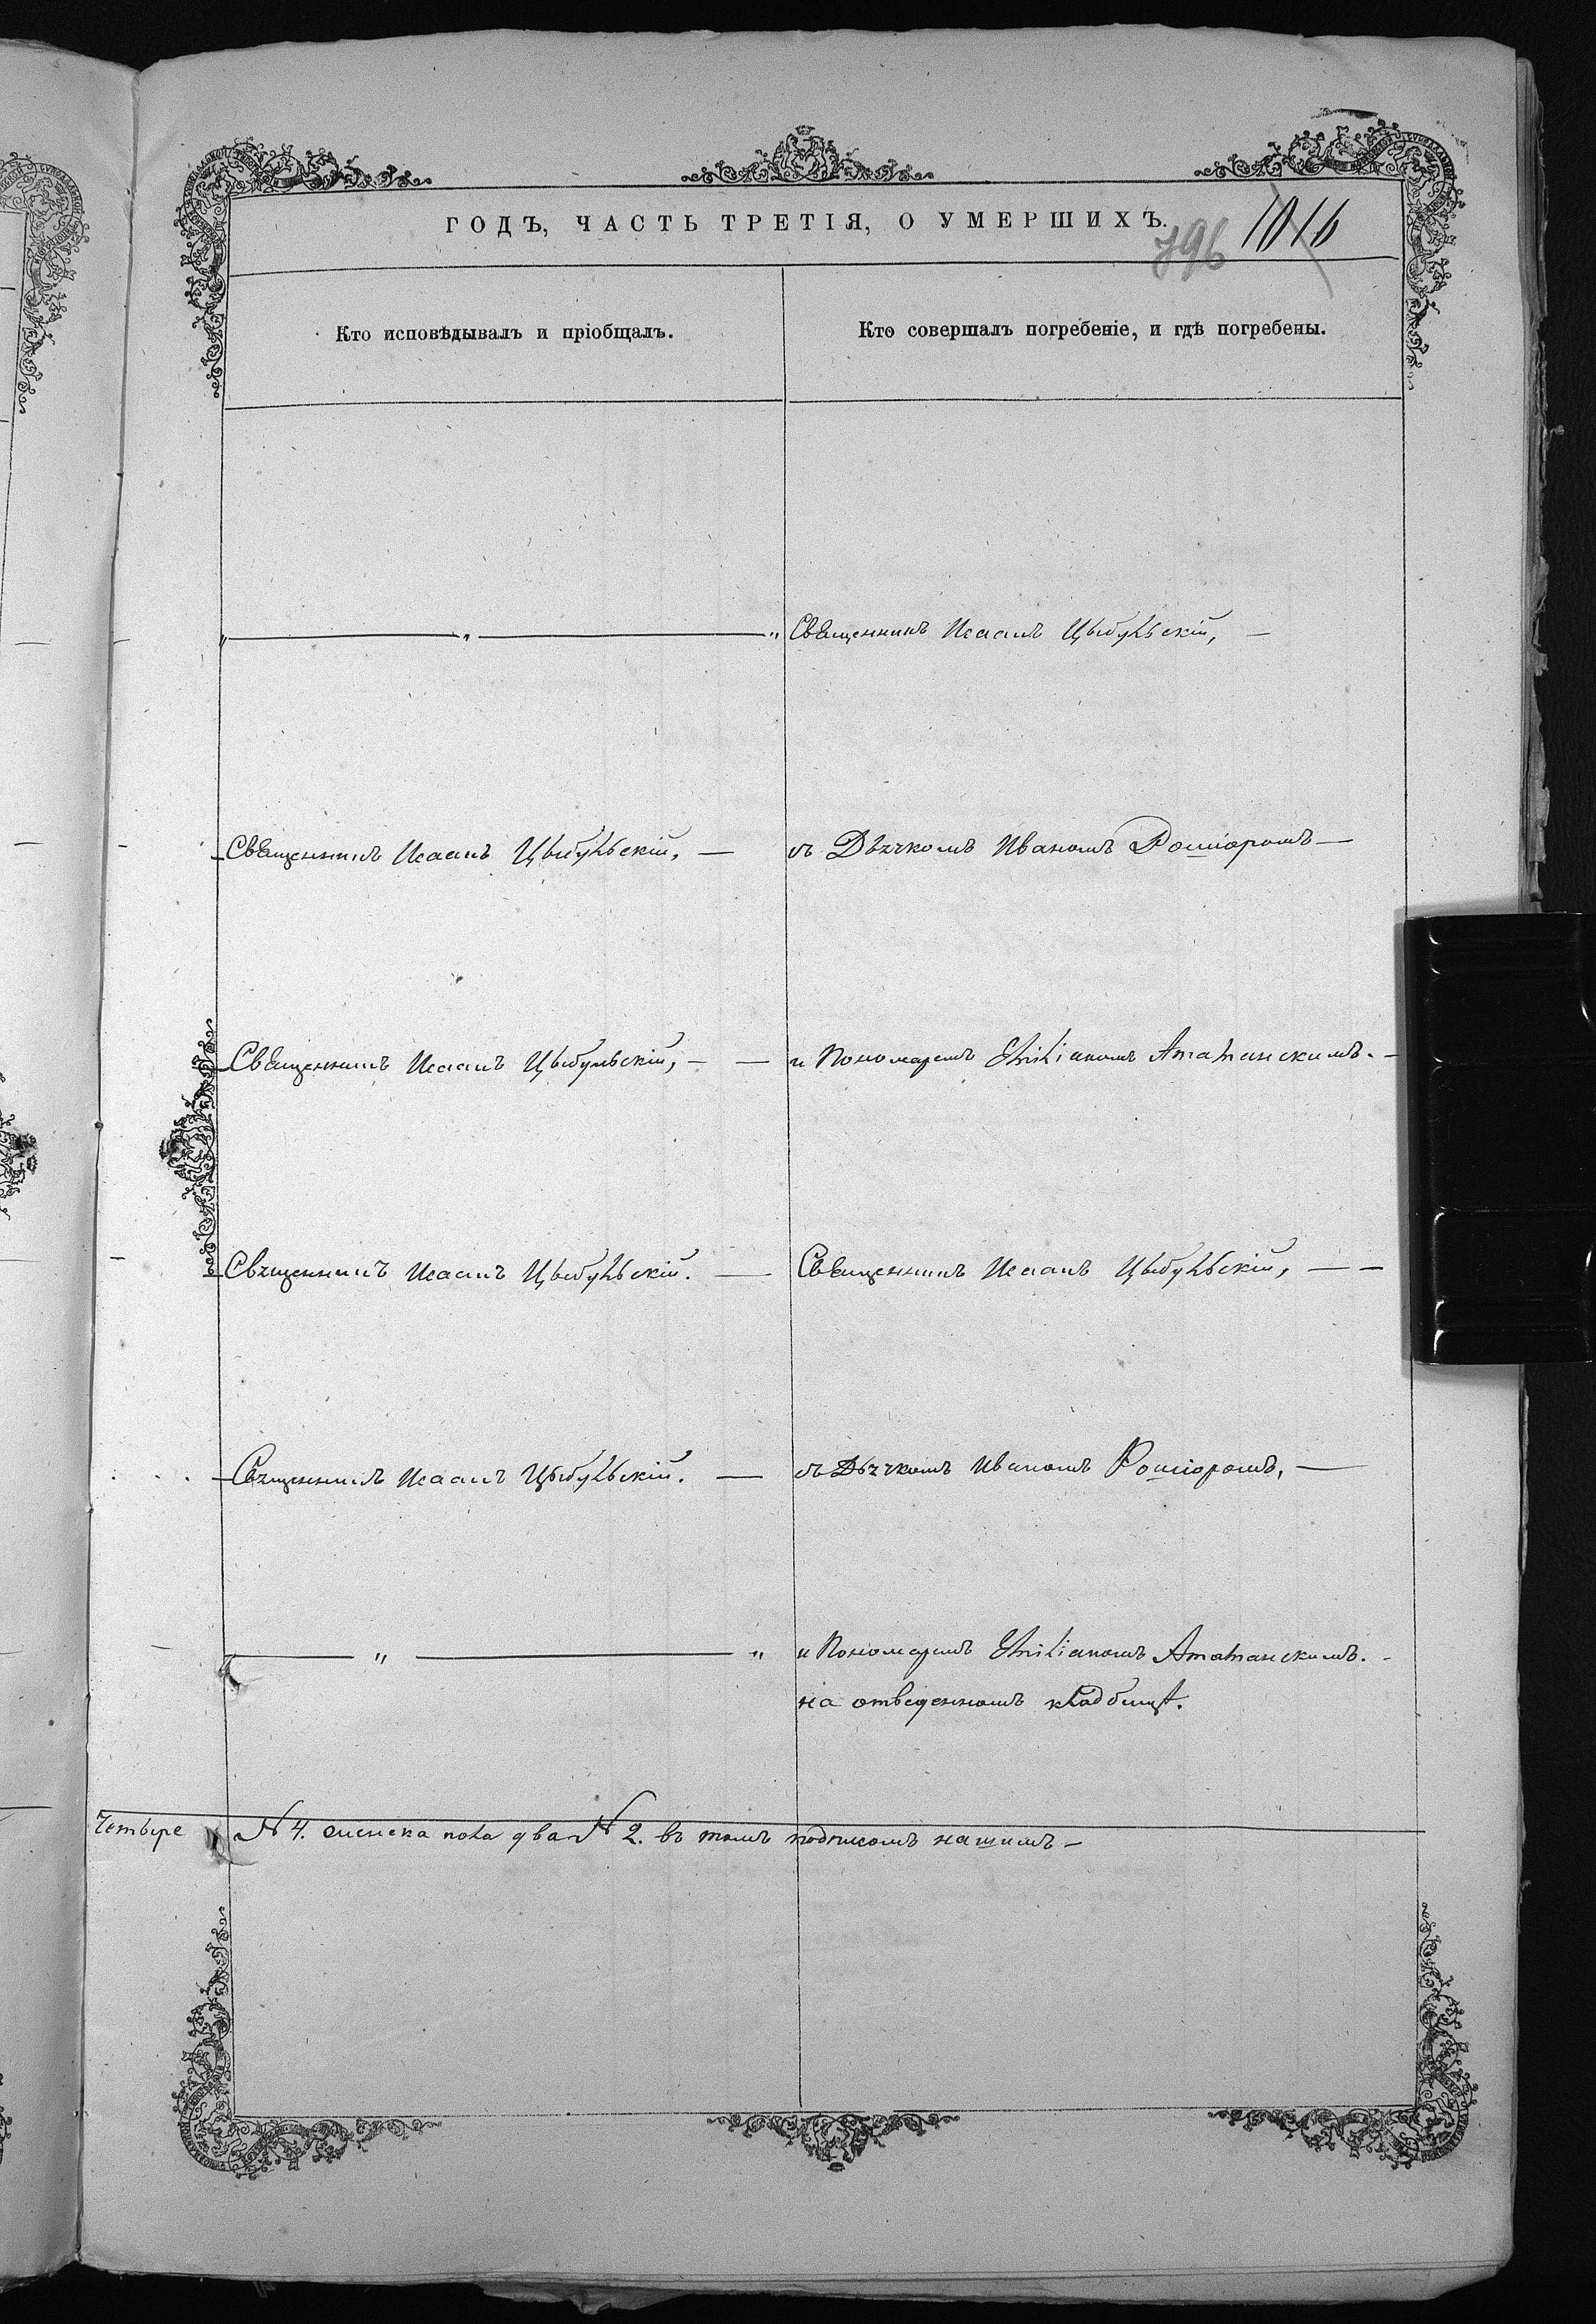 ГОДЪ, ЧАСТЬ ТРЕТІЯ, О УМЕРШИХЪ.
796 1016
Кто исповѣдывалъ и пріобщалъ.
Кто совершалъ погребеніе, и гдѣ погребены.
" — " — " Священникъ Исаакъ Цыбульскій, —
Священникъ Исаакъ Цыбульскій, — съ Дьячкомъ Иваномъ Рошіоромъ —
Священникъ Исаакъ Цыбульскій, — — и Пономаремъ Эмиліаномъ Атаманскимъ. —
Священникъ Исаакъ Цыбульскій. — Священникъ Исаакъ Цыбульскій, — —
Священникъ Исаакъ Цыбульскій. — съ Дьячкомъ Иваномъ Рошіоромъ, —
" — " — " и Пономаремъ Эмиліаномъ Атаманскимъ. -
на отведенномъ кладбищѣ.
Четыре № 4. женска пола два № 2. въ томъ подписомъ нашимъ —